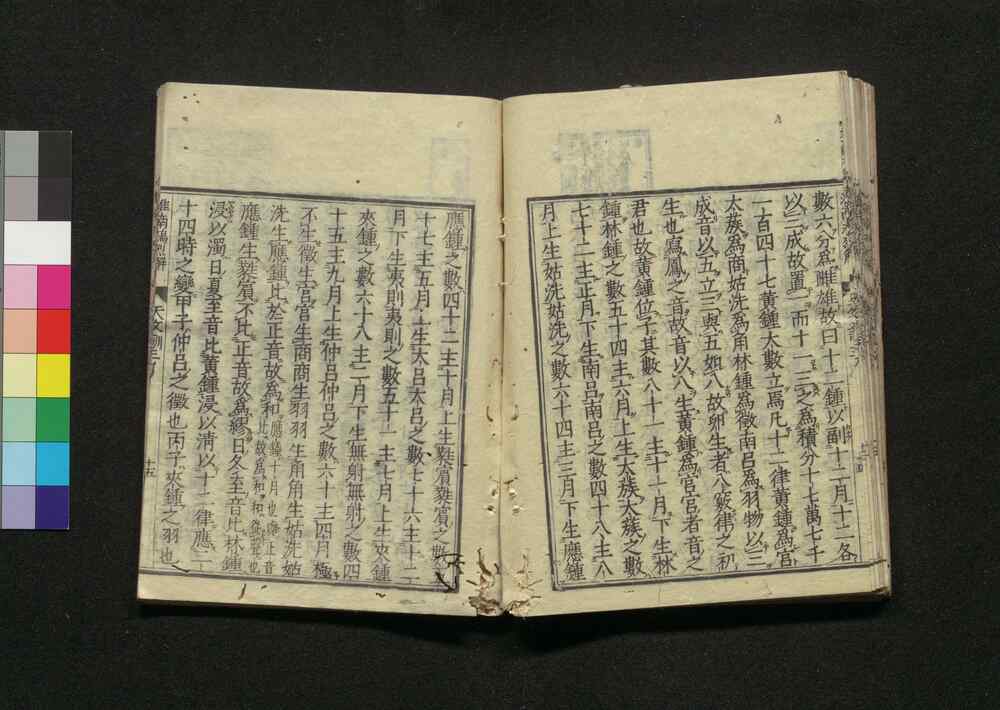 數六分爲雌雄故曰十二鍾以副十二月十二各
以三成故置一而十一三之爲積分十七萬七千
一百四十七黃鍾大數立焉凡十二律黃鍾爲宮
太蔟爲商姑洗爲角林鍾爲徵南呂爲羽物以三
成音以五立三與五如八故卵生者八竅律之初
生也寫鳳之音故音以八生黃鍾爲宮宮者音之
君也故黃鍾位子其數八十一主十一月下生林
鍾林鍾之數五十四主六月上生太蔟太蔟之數
七十二主正月下生南呂南呂之數四十八主八
月上生姑洗姑洗之數六十四主三月下生應鍾
應鍾之數四十二主十月上生蕤賔蕤賔之數
十七主五月上生大呂大呂之數七十六主十二
月下生夷則夷則之數五十一主七月上生夾鍾
夾鍾之數六十八主二月下生無射無射之數四
十五主九月上生仲呂仲呂之數六十主四月極
不生徵生宮宮生商商生羽羽生角角生姑洗姑
洗生應鍾比於正音故爲和應鍾十月也與正音比故爲和和從聲也
應鍾生蕤賔不比正音故爲繆日冬至音比林鍾
浸以濁日夏至音比黃鍾浸以淸以十二律應二
十四時之變甲子仲呂之徵也丙子夾鍾之羽也
淮南鴻烈解 天文訓三 十五